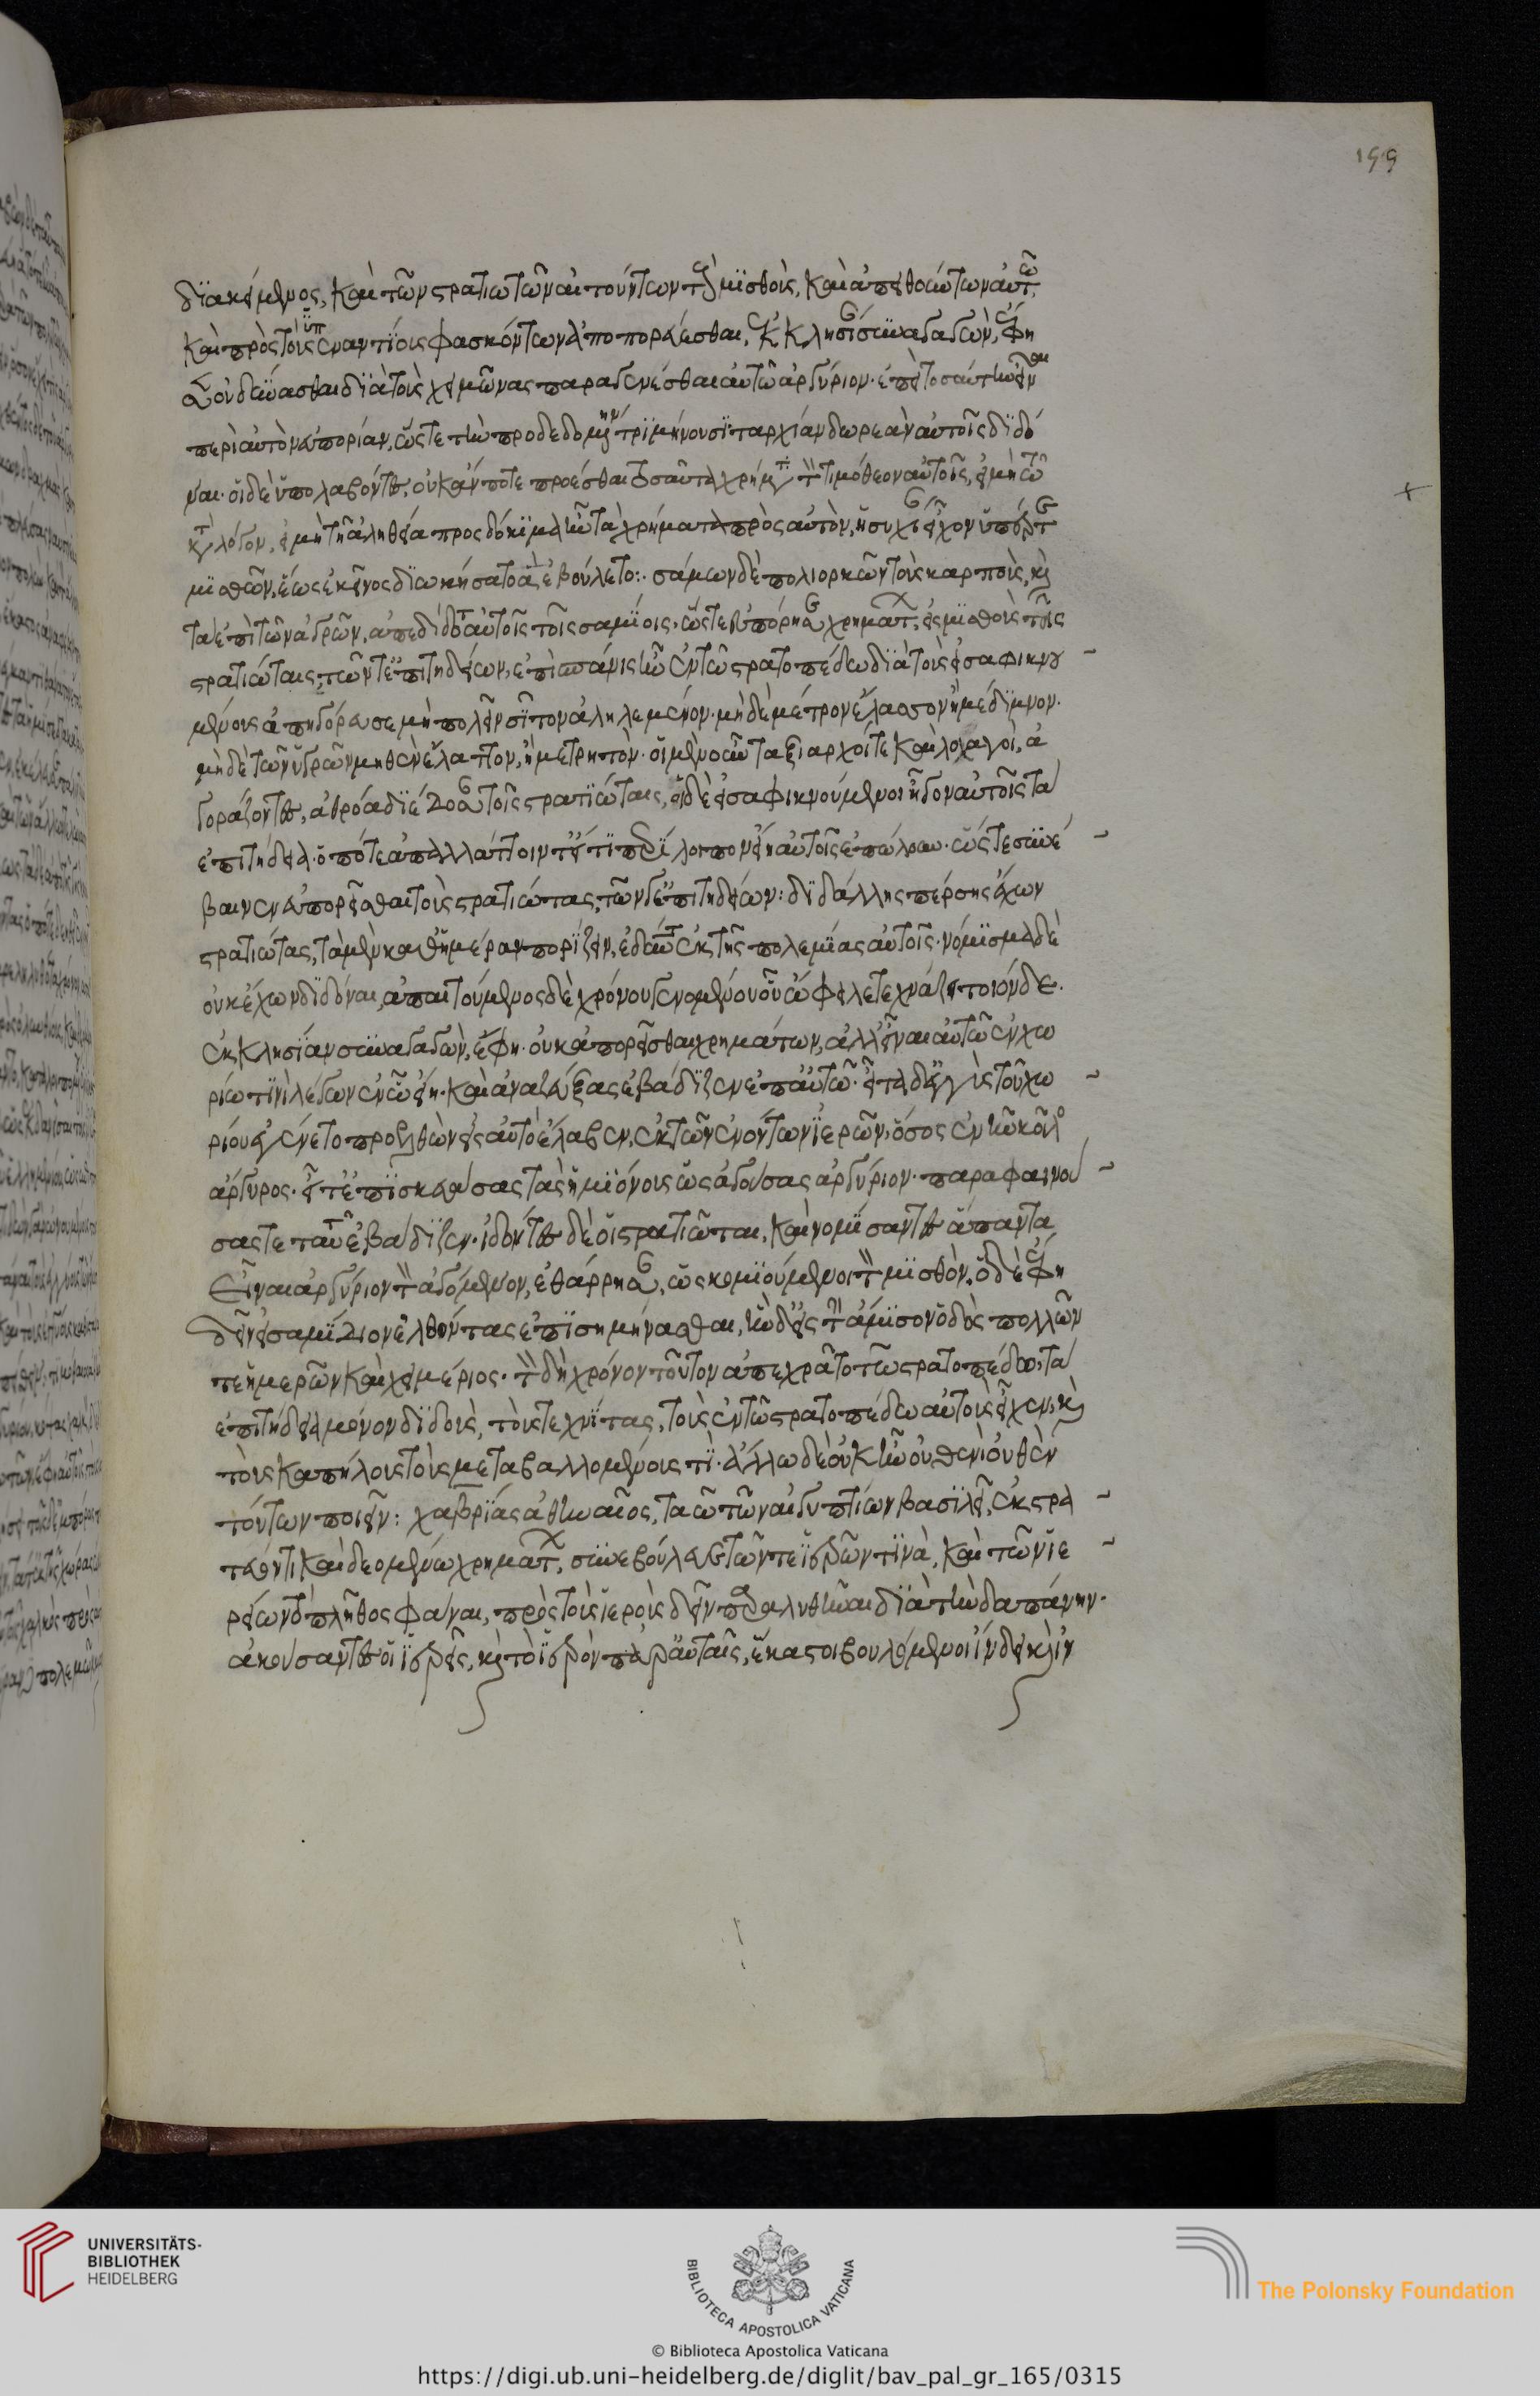 διακείμενος, καὶ τῶν στρατιωτῶν αἰτούντων τοὺς μισθοὺς, καὶ ἀπειθούντων αὐτῷ,
καὶ πρὸς τοὺς ὑπεναντίους φασκόντων ἀποπορεύεσθαι, ἐκκλησίαν συναγαγὼν, ἔφη
οὐ δύνασθαι διὰ τοὺς χειμῶνας παραγενέσθαι αὐτῷ ἀργύριον. ἐπεὶ τοσαύτην εἶναι
περὶ αὐτὸν εὐπορίαν, ὥστε τὴν προδεδομένην τριμήνου σιταρχίαν δωρεὰν αὐτοῖς διδό
ναι. οἱ δὲ ὑπολαβόντες, οὐκ ἄν ποτε προέσθαι τοσαῦτα χρήματα τὸν τιμόθεον αὐτοῖς, εἰ μὴ τῷ
λόγον, εἰ μὴ τῇ ἀληθεία προσδόκιμα ἦν τὰ χρήματα πρὸς αὐτὸν, ἡσυχίαν εἶχον ὑπὲρ τῶν
μισθῶν, ἕως ἐκεῖνος διωκήσατο ἃ ἐβούλετο: σάμον δὲ πολιορκῶν τοὺς καρποὺς, καὶ
τὰ ἐπὶ τῶν ἀγρῶν, ἀπεδίδοτο αὐτοῖς τοῖς σαμίοις, ὥστε εὐπόρησε χρημάτων, εἰς μισθοὺς τοῖς
στρατιώταις, τῶν τ' ἐπιτηδείων, ἐπεὶ σπάνις ἦν ἐν τῶ στρατοπέδω διὰ τοὺς εἰσαφικνου
μένους ἀπηγόρευσε μὴ πολεῖν σῖτον ἀληλεμένον. μὴ δὲ μέτρον ἔλασσον ἢ μέδιμνον.
μὴ δὲ τῶν ὑγρῶν μηθὲν ἔλαττον, ἢ μετρητόν. οἱ μὲν οὖν ταξίαρχοί τε καὶ λοχαγοὶ, ἀ
γοράζοντες, ἀθρόα διέδοσαν τοῖς στρατιώταις, οἱ δὲ εἰσαφικνούμενοι ἦγον αὐτοῖς τὰ
ἐπιτήδεια. ὁπότε ἀπαλλάττοιντ' εἴ τι περίλοιπον εἴη αὐτοῖς ἐπώλουν. ὥστε συνέ
βαινεν εὐπορεῖσθαι τοὺς στρατιώτας, τῶν δ' ἐπιτηδείων: διδάλλης πέρσης ἔχων
στρατιώτας, τὰ μὲν καθ' ἡμέραν πορίζειν, ἐδύνατο ἐκ τῆς πολεμίας αὐτοῖς. νόμισμα δὲ
οὐκ ἔχων διδόναι, ἀπαιτούμενος δὲ χρόνου γενομένου οὗ ὤφειλε τεχνάζει τοιόνδε.
ἐκκλησίαν συναγαγὼν, ἔφη. οὐκ ἀπορεῖσθαι χρημάτων, ἀλλ' εἶναι αὐτῷ ἐν χω
ρίω τινὶ λέγων ἐν ᾧ εἴη. καὶ ἀναζεύξας ἐβάδιζεν ἐπ' αὐτῶ. εἶτα δ' ἐγγὺς τοῦ χω
ρίου ἐγένετο προελθὼν εἰς αὐτὸ ἔλαβεν, ἐκ τῶν ἐνόντων ἱερῶν, ὅσος ἐνῆν κοῖλος
ἄργυρος. εἶτ' ἐπισκευάσας τὰς ἡμιόνους ὡς ἀγούσας ἀργύριον. παραφαινού
σας τε ταῦτα ἐβάδιζεν. ἰδόντες δὲ οἱ στρατιῶται, καὶ νομίσαντες ἅπαντα
εἶναι ἀργύριον τὸ ἀγόμενον, ἐθάρρησαν, ὡς κομιούμενοι τὸν μισθὸν. ὁ δὲ ἔφη
δεῖν εἰς ἀμισὸν ἐλθόντας ἐπισημήνασθαι, ἦν δ' εἰς τὴν ἀμισὸν ὁδὸς πολλῶν
τε ἡμερῶν καὶ χειμέριος. τὸν δὴ χρόνον τοῦτον ἀπεχρᾶτο τῷ στρατοπέδω, τὰ
ἐπιτήδεια μόνον διδοὺς, τοὺς τεχνίτας, τοὺς ἐν τῷ στρατοπέδω αὐτοὺς εἶχεν, καὶ
τοὺς καπήλους τοὺς μεταβαλλομένους τι. ἄλλω δὲ οὐκ ἦν οὐθενὶ οὐθὲν
τούτων ποιεῖν: χαβρίας ἀθηναῖος, ταῷ τῶν αἰγυπτίων βασιλεῖ, ἐκστρα
τεύοντι καὶ δεομένω χρημάτων, συνεβούλευσε τῶν τε ἱερῶν τινὰ, καὶ τῶν ἱε
ρέων τὸ πλῆθος φάναι, πρὸς τοὺς ἱεροὺς δεῖν παραλυθῆναι διὰ τὴν δαπάνην.
ἀκούσαντες οἱ ἱερεῖς, καὶ τὸ ἱερὸν παρ' αὐταῖς, ἕκαστοι βουλόμενοι
199
UNIVERSITÄTS-
BIBLIOTHEK
HEIDELBERG
BIBLIOTECA APOSTOLICA VATICANA
The Polonsky Foundation
© Biblioteca Apostolica Vaticana
https://digi.ub.uni-heidelberg.de/diglit/bav_pal_gr_165/0315